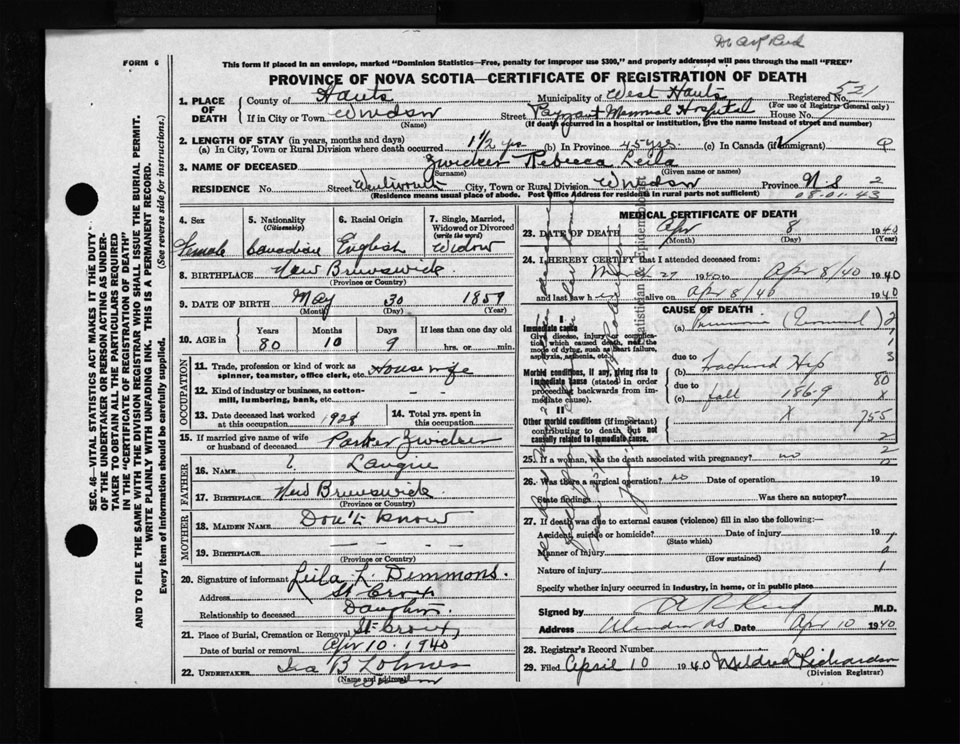 Dr A R Reid
FORM 6
This form if placed in an envelope, marked "Dominion Statistics—Free, penalty for improper use $300," and properly addressed will pass through the mail "FREE"
PROVINCE OF NOVA SCOTIA—CERTIFICATE OF REGISTRATION OF DEATH
521
1. PLACE OF DEATH
County of Hants
Municipality of West Hants
Registered No.
(For use of Registrar General only)
If in City or Town Windsor
(Name)
Street Payzant Memorial Hospital
House No.
(If death occurred in a hospital or institution, give the name instead of street and number)
2. LENGTH OF STAY (in years, months and days)
(a) In City, Town or Rural Division where death occurred 1 1/2 yrs (b) In Province 45 yrs. (c) In Canada (if immigrant)
3. NAME OF DECEASED Zwicker Rebecca Leila
(Surname) (Given name or names)
RESIDENCE No. Street Wentworth City, Town or Rural Division Windsor Province N.S. 2
(Residence means usual place of abode. Post Office Address for residents in rural parts not sufficient)
08.01.43
4. Sex
Female
5. Nationality (Citizenship)
Canadian
6. Racial Origin
English
7. Single, Married, Widowed or Divorced (write the word)
Widow
8. BIRTHPLACE New Brunswick.
(Province or Country)
9. DATE OF BIRTH May 30 1859
(Month) (Day) (Year)
10. AGE in
Years Months Days If less than one day old
80 10 9 hrs. or min.
OCCUPATION
11. Trade, profession or kind of work as spinner, teamster, office clerk, etc. House wife
12. Kind of industry or business, as cotton-mill, lumbering, bank, etc. — —
13. Date deceased last worked at this occupation 1928
14. Total yrs. spent in this occupation
15. If married give name of wife or husband of deceased Parker Zwicker
FATHER
16. NAME
17. BIRTHPLACE New Brunswick.
MOTHER
18. MAIDEN NAME Don't Know
19. BIRTHPLACE — — — —
(Province or Country)
20. Signature of informant Leila L Dimmons.
Address St Croix
Relationship to deceased Daughter.
21. Place of Burial, Cremation or Removal St Croix,
Date of burial or removal Apr 10. 1940
22. UNDERTAKER Ira B Lohnes
(Name and address)
Windsor
MEDICAL CERTIFICATE OF DEATH
23. DATE OF DEATH Apr 8 1940
(Month) (Day) (Year)
24. I HEREBY CERTIFY that I attended deceased from:
27 1940 to Apr 8/40 1940
and last saw her alive on Apr 8/40 1940
CAUSE OF DEATH
I
Immediate cause
Give disease, injury or complication which caused death, not the mode of dying, such as heart failure, asphyxia, asthenia, etc.
(a) Pneumonia (Terminal)
Morbid conditions, if any, giving rise to immediate cause (stated in order proceeding backwards from immediate cause).
due to Fractured Hip
due to
(c) fall 186-9
II
Other morbid conditions (if important) contributing to death, but not causally related to immediate cause.
755
25. If a woman, was the death associated with pregnancy? no
26. Was there a surgical operation? no Date of operation 19
State findings Was there an autopsy?
27. If death was due to external causes (violence) fill in also the following:—
Accident, suicide or homicide? Date of injury 19
(State which)
Manner of injury
(How sustained)
Nature of injury
Specify whether injury occurred in industry, in home, or in public place
Signed by A R Reid M.D.
Address Windsor NS Date Apr 10 1940
28. Registrar's Record Number
29. Filed April 10 1940 Mildred Richardson
(Division Registrar)
SEC. 46—VITAL STATISTICS ACT MAKES IT THE DUTY
OF THE UNDERTAKER OR PERSON ACTING AS UNDER-
TAKER TO OBTAIN ALL THE PARTICULARS REQUIRED
IN THE "CERTIFICATE OF REGISTRATION OF DEATH"
AND TO FILE THE SAME WITH THE DIVISION REGISTRAR WHO SHALL ISSUE THE BURIAL PERMIT.
WRITE PLAINLY WITH UNFADING INK. THIS IS A PERMANENT RECORD.
Every item of Information should be carefully supplied. (See reverse side for instructions.)